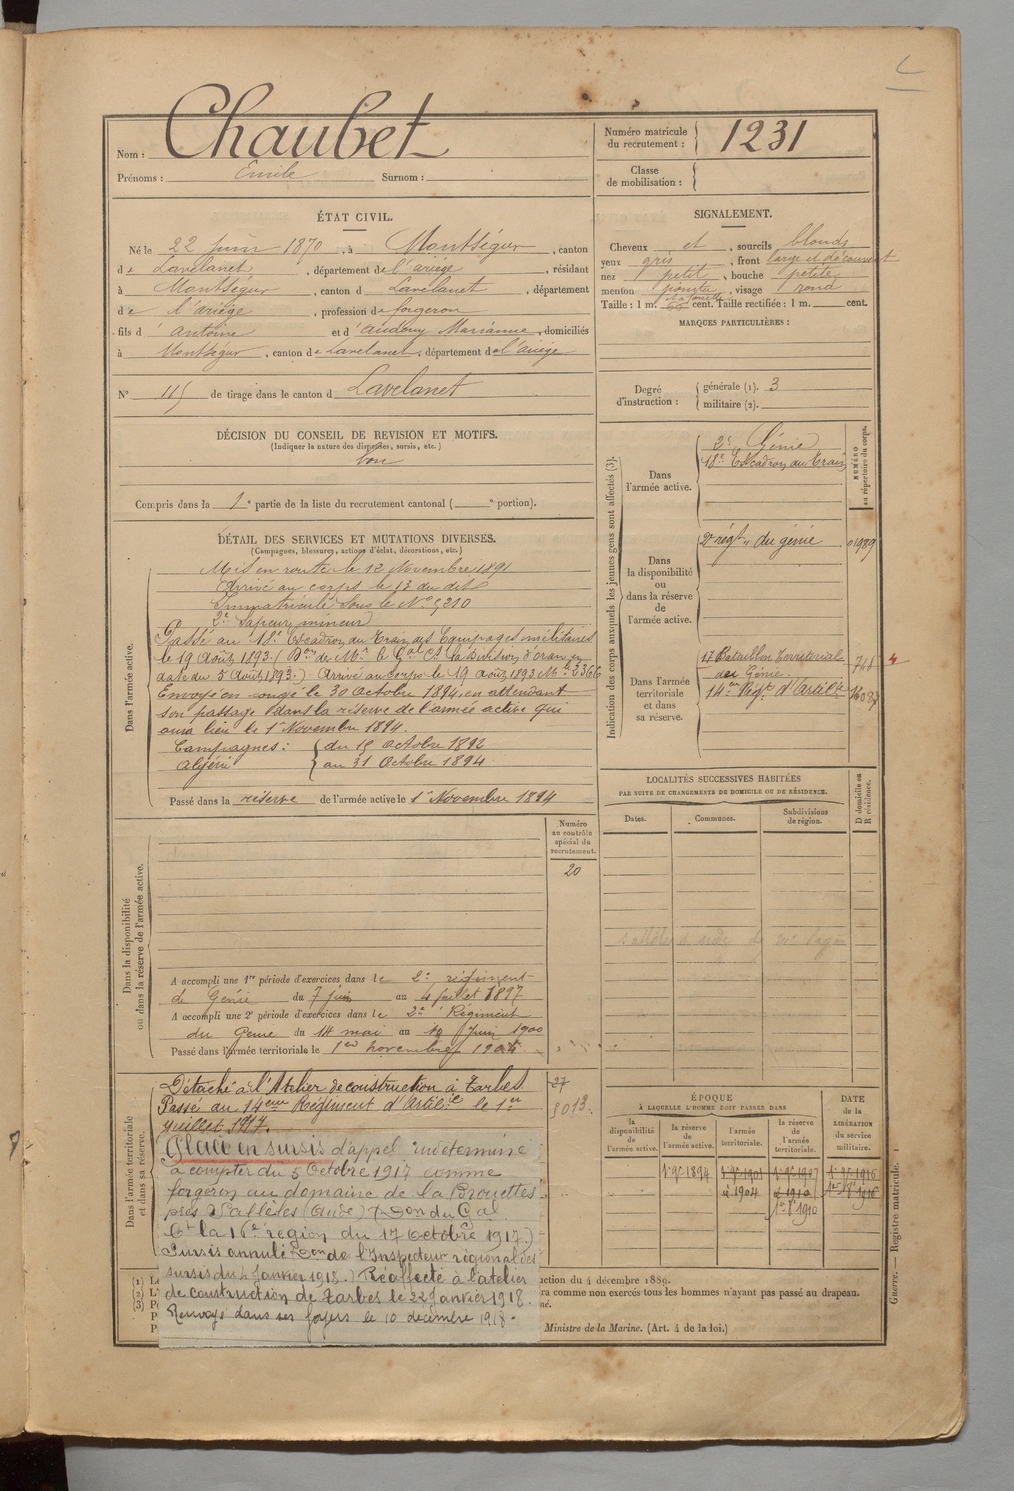 Nom : Chaubet
Prénoms : Emile Surnom :
Numéro matricule du recrutement : 1231
Classe de mobilisation :
ÉTAT CIVIL.
Né le 22 juin 1870, à Montségur, canton
de Lavelanet, département de l'ariège, résidant
à Montségur, canton d Lavelanet, département
de l'ariège, profession de forgeron
fils d' Antoine et d' Audouy Marianne, domiciliés
à Montségur, canton de Lavelanet, département de l'ariège
N° 115 de tirage dans le canton d Lavelanet
SIGNALEMENT.
Cheveux et, sourcils blonds
yeux gris, front large et découvert
nez petit, bouche petite
menton pointu, visage rond
Taille : 1 m. 66 cent. Taille rectifiée : 1 m. cent.
MARQUES PARTICULIÈRES :
Degré d'instruction : générale (1). 3
militaire (2).
DÉCISION DU CONSEIL DE REVISION ET MOTIFS.
(Indiquer la nature des dispenses, sursis, etc.)
bon
Compris dans la 1e partie de la liste du recrutement cantonal ( e portion).
DÉTAIL DES SERVICES ET MUTATIONS DIVERSES.
(Campagnes, blessures, actions d'éclat, décorations, etc.)
Dans l'armée active.
Mis en route le 12 Novembre 1891
Arrivé au corps le 13 du dit
Immatriculé sous le N° 5210
2e Sapeur mineur
Passé au 18e Escadron du Train des Equipages militaires
le 19 Août 1893 (Don de Mr le Gal Ct la Division d'oran en
date du 5 Août 1893.) Arrivé au corps le 19 Août 1893 Mle 3366
Envoyé en congé le 30 Octobre 1894, en attendant
son passage dans la réserve de l'armée active qui
aura lieu le 1er Novembre 1894.
Campagnes : du 15 Octobre 1892
Algérie au 31 Octobre 1894
Passé dans la réserve de l'armée active le 1er Novembre 1894
Indication des corps auxquels les jeunes gens sont affectés (3).
NUMÉRO au répertoire du corps.
Dans l'armée active.
2e Génie
18e Escadron du Train
Dans la disponibilité ou dans la réserve de l'armée active.
2e régt du génie 01989
Dans l'armée territoriale et dans sa réserve.
17 Bataillon Territorial du Génie. 748
14eme Régt d'Artillie
LOCALITÉS SUCCESSIVES HABITÉES
PAR SUITE DE CHANGEMENTS DE DOMICILE OU DE RÉSIDENCE.
Dates. Communes. Subdivisions de région. D domicile ou R résidence.
Numéro au contrôle spécial du recrutement.
20
Dans la disponibilité ou dans la réserve de l'armée active.
A accompli une 1re période d'exercices dans le 2e régiment
de Génie du 7 juin au 4 juillet 1897
A accompli une 2e période d'exercices dans le 2e Régiment
du Génie du 14 mai au 10 Juin 1900
Passé dans l'armée territoriale le 1er novembre 1904
Dans l'armée territoriale et dans sa réserve.
Détaché à l'Atelier de construction à Tarbes 27
Passé au 14eme Régiment d'Artilie le 1er
juillet 1917.
Placé en sursis d'appel indéterminé
à compter du 5 Octobre 1917 comme
forgeron au domaine de la Brouettes
près Sallèles (Aude) Don du Gal
Ct la 16e région du 17 Octobre 1917.)
Sursis annulé Don de l'Inspecteur régional des
sursis du 4 Janvier 1918.) Réaffecté à l'atelier
de construction de Tarbes le 22 Janvier 1918.
Renvoyé dans ses foyers le 10 décembre 1918.
ÉPOQUE
À LAQUELLE L'HOMME DOIT PASSER DANS
la disponibilité de l'armée active. la réserve de l'armée active. l'armée territoriale. la réserve de l'armée territoriale.
DATE de la LIBÉRATION du service militaire.
1er 9e 1894
à 1904
ction du 4 décembre 1889.
ra comme non exercés tous les hommes n'ayant pas passé au drapeau.
né.
Ministre de la Marine. (Art. 4 de la loi.)
(1)
(2)
(3)
Guerre. — Registre matricule. 1